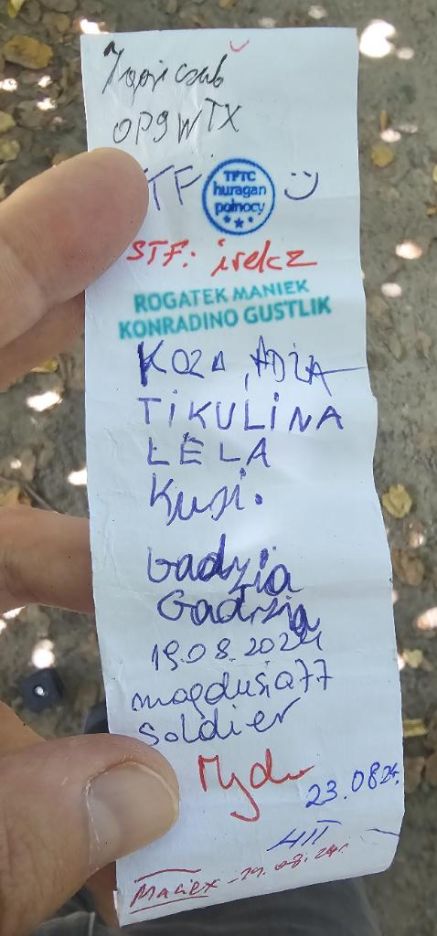 OP9WTX
TF
TFTC
huragan
północy
STF: irekz
ROGATEK MANIEK
KONRADINO GUSTLIK
KOZA, ADZIA
TIKULINA
LELA
Kusi.
Gadzia
Gadzia
19.08.2024
magdusia77
Soldier
23.08 24.
Maciex - 29.08.24r.